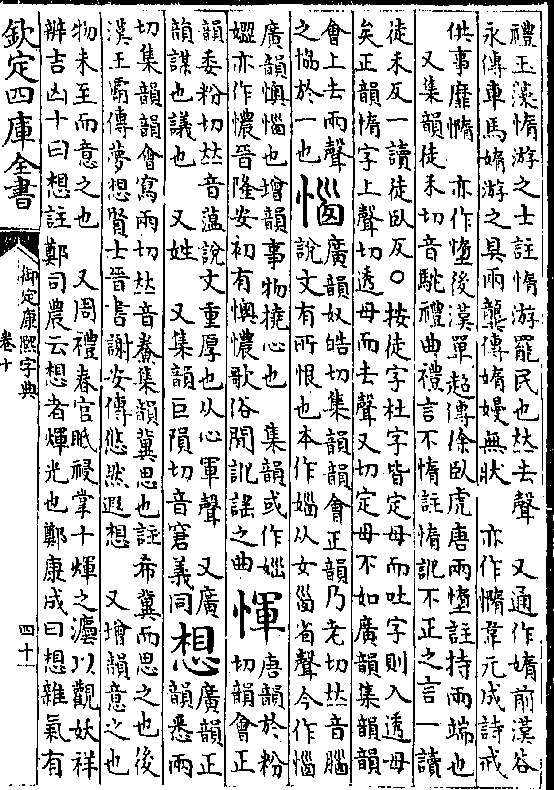 禮玉藻惰游之士註惰游罷民也𠀤去聲　又通作媠前漢谷
永傳車馬媠游之具兩龔傳媠嫚無狀　亦作憜韋元成詩戒
供事靡憜　亦作㥩後漢單超傳徐臥虎唐兩㥩註持兩端也
又集韻徒禾切音駝禮曲禮言不惰註惰訛不正之言一讀
徒禾反一讀徒臥反○按徒字杜字皆定母而吐字則入透母
矣正韻惰字上聲切透母而去聲又切定母不如廣韻集韻韻
會上去兩聲
之協於一也
惱
廣韻奴皓切集韻韻會正韻乃老切𠀤音腦
說文有所恨也本作㛴从女㛴省聲今作惱
廣韻懊惱也增韻事物撓心也　集韻或作㛴
嬺亦作憹晉隆安初有懊憹歌俗閒訛謠之曲
惲
唐韻於粉
切韻會正
韻委粉切𠀤音薀說文重厚也从心軍聲　又廣
韻謀也議也　又姓　又集韻巨隕切音窘義同
想
廣韻正
韻悉兩
切集韻韻會寫兩切𠀤音鯗集韻冀思也註希冀而思之也後
漢王霸傳夢想賢士晉書謝安傳悠然遐想　又增韻意之也
物未至而意之也　又周禮春官眡祲掌十煇之灋以觀妖祥
辨吉凶十曰想註鄭司農云想者煇光也鄭康成曰想雜氣有
欽定四庫全書
御定康熙字典
卷十
四十一